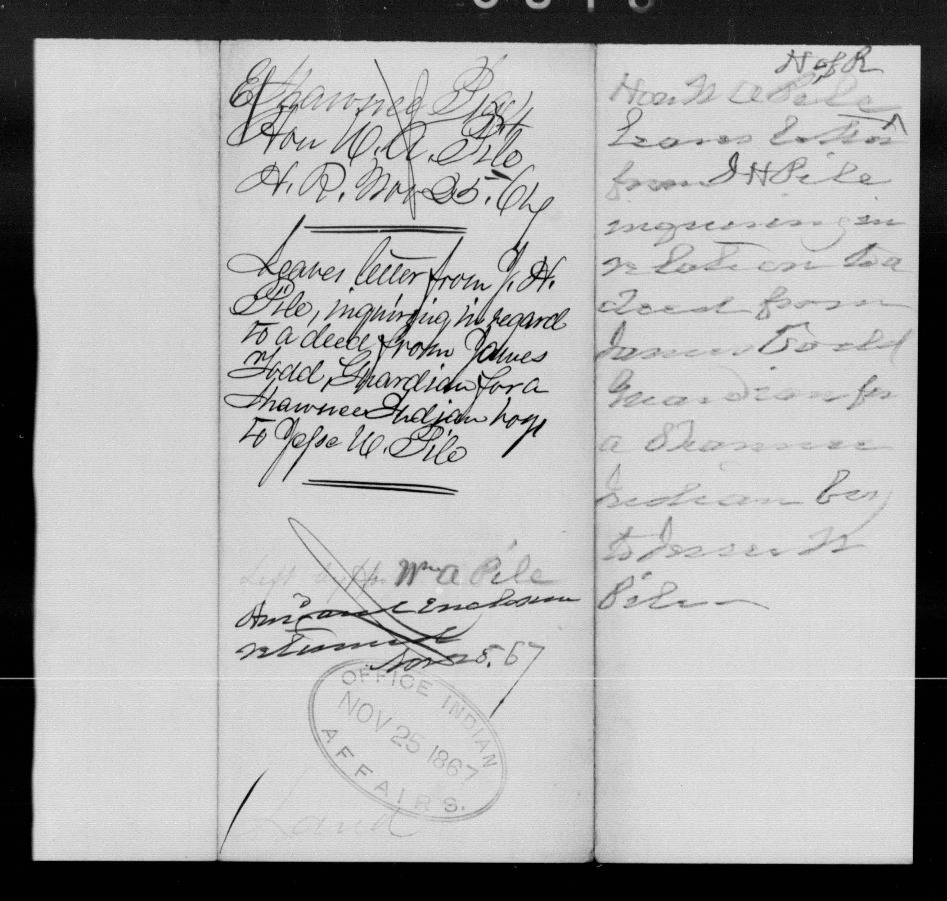 Shawnee
Hon W. A. Pile
H. R. Nov 25. 67
Leaves letter from J. H.
Pile, inquiring in regard
to a deed from James
Todd, Guardian for a
Shawnee Indian boy
to Jesse W. Pile
Left by Hon Wm A Pile
Ansd and Enclosure
returned
Nov 25. 67
OFFICE INDIAN
NOV 25 1867
AFFAIRS.
Land
H of R
Hon W A Pile
Leaves letter
from J H Pile
inquiring in
relation to a
deed from
James Todd
Guardian for
a Shawnee
Indian boy
to Jesse W
Pile